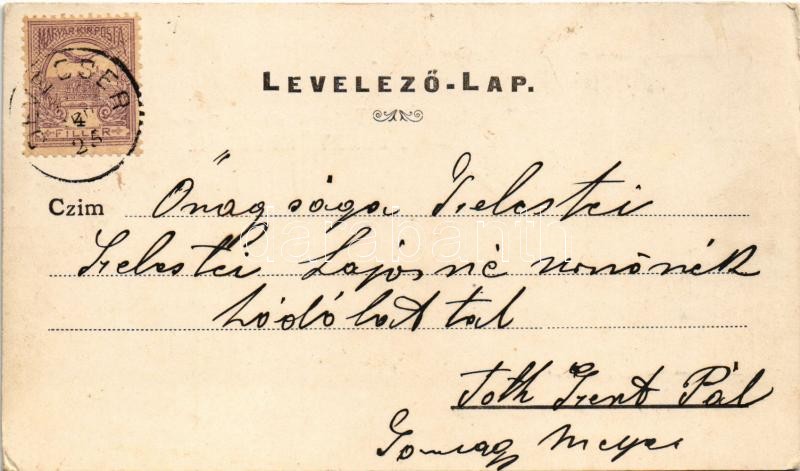 MAGYAR KIR. POSTA
FILLÉR
CSER
4
25
LEVELEZŐ-LAP.
Czim Őnagysága Szelestei
Szelestei Lajosné nénőnék
hódólattal
Tóth Szent Pál
Somogy megye
darabanth